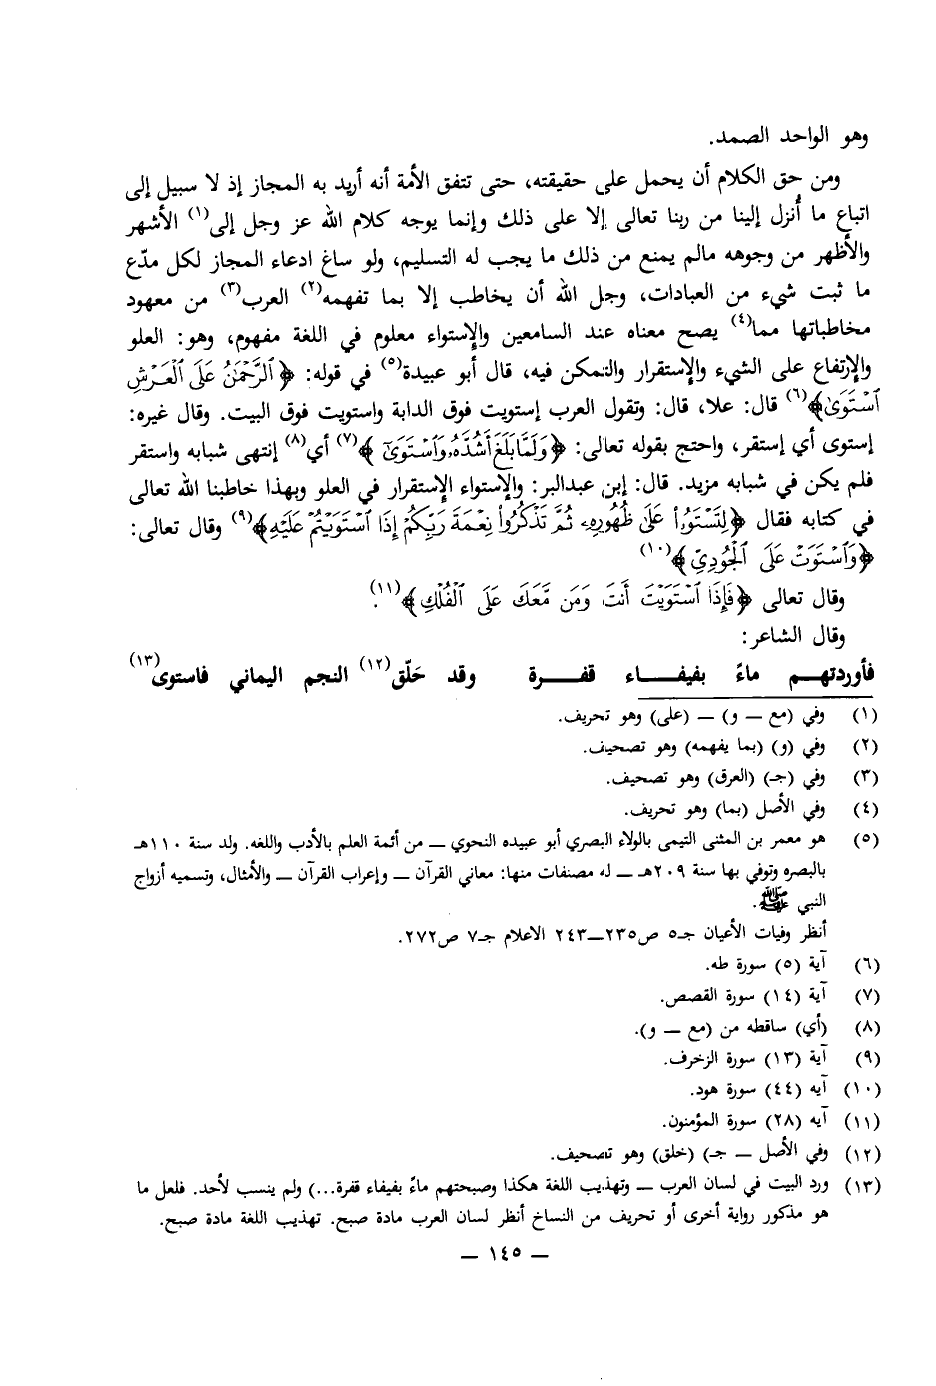 وهو الواحد الصمد.
ومن حق الكلام أن يحمل على حقيقته، حتى تتفق الأمة أنه أريد به المجاز إذ لا سبيل إلى
اتباع ما أُنزل إلينا من ربنا تعالى إلا على ذلك وإنما يوجه كلام الله عز وجل إلى(١) الأشهر
والأظهر من وجوهه مالم يمنع من ذلك ما يجب له التسليم، ولو ساغ ادعاء المجاز لكل مدّع
ما ثبت شيء من العبادات، وجل الله أن يخاطب إلا بما تفهمه(٢) العرب(٣) من معهود
مخاطباتها مما(٤) يصح معناه عند السامعين والإستواء معلوم في اللغة مفهوم، وهو: العلو
والإرتفاع على الشيء والإستقرار والتمكن فيه، قال أبو عبيدة(٥) في قوله: ﴿ٱلرَّحْمَٰنُ عَلَى ٱلْعَرْشِ
ٱسْتَوَىٰ﴾(٦) قال: علا، قال: وتقول العرب إستويت فوق الدابة واستويت فوق البيت. وقال غيره:
إستوى أي إستقر، واحتج بقوله تعالى: ﴿وَلَمَّا بَلَغَ أَشُدَّهُۥ وَٱسْتَوَىٰٓ﴾(٧) أي(٨) إنتهى شبابه واستقر
فلم يكن في شبابه مزيد. قال: إبن عبدالبر: والإستواء الإستقرار في العلو وبهذا خاطبنا الله تعالى
في كتابه فقال ﴿لِتَسْتَوُۥا۟ عَلَىٰ ظُهُورِهِۦ ثُمَّ تَذْكُرُوا۟ نِعْمَةَ رَبِّكُمْ إِذَا ٱسْتَوَيْتُمْ عَلَيْهِ﴾(٩) وقال تعالى:
﴿وَٱسْتَوَتْ عَلَى ٱلْجُودِىِّ﴾(١٠)
وقال تعالى ﴿فَإِذَا ٱسْتَوَيْتَ أَنتَ وَمَن مَّعَكَ عَلَى ٱلْفُلْكِ﴾(١١).
وقال الشاعر:
فأوردتهــم ماءً بفيفــاء قفــرة وقد حَلّق(١٢) النجم اليماني فاستوى(١٣)
(١) وفي (مع ـ و) ـ (على) وهو تحريف.
(٢) وفي (و) (بما يفهمه) وهو تصحيف.
(٣) وفي (جـ) (العرق) وهو تصحيف.
(٤) وفي الأصل (بما) وهو تحريف.
(٥) هو معمر بن المثنى التيمى بالولاء البصري أبو عبيده النحوي ـ من أئمة العلم بالأدب واللغه. ولد سنة ١١٠هـ
بالبصره وتوفي بها سنة ٢٠٩هـ ـ له مصنفات منها: معاني القرآن ـ وإعراب القرآن ـ والأمثال، وتسميه أزواج
النبي ﷺ.
أنظر وفيات الأعيان جـ٥ ص٢٣٥ـ٢٤٣ الاعلام جـ٧ ص٢٧٢.
(٦) آية (٥) سورة طه.
(٧) آية (١٤) سورة القصص.
(٨) (أي) ساقطه من (مع ـ و).
(٩) آية (١٣) سورة الزخرف.
(١٠) آيه (٤٤) سورة هود.
(١١) آيه (٢٨) سورة المؤمنون.
(١٢) وفي الأصل ـ جـ) (خلق) وهو تصحيف.
(١٣) ورد البيت في لسان العرب ـ وتهذيب اللغة هكذا وصبحتهم ماءً بفيفاء قفرة...) ولم ينسب لأحد. فلعل ما
هو مذكور رواية أخرى أو تحريف من النساخ أنظر لسان العرب مادة صبح. تهذيب اللغة مادة صبح.
ـ ١٤٥ ـ